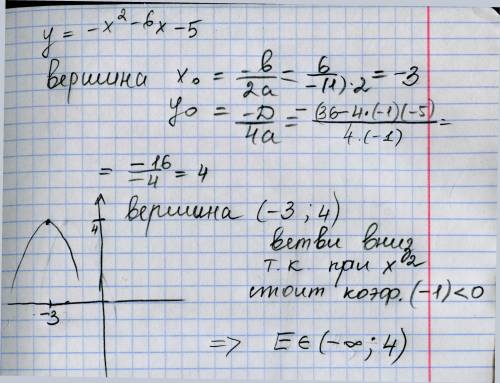 y = -x² - 6x - 5
вершина x₀ = -b/2a = 6/-(1)·2 = -3
y₀ = -D/4a = -(36-4·(-1)(-5)/4·(-1) =
= -16/-4 = 4
вершина (-3; 4)
4
ветви вниз
т.к. при x²
стоит коэф. (-1)<0
-3
=> E∈(-∞; 4)